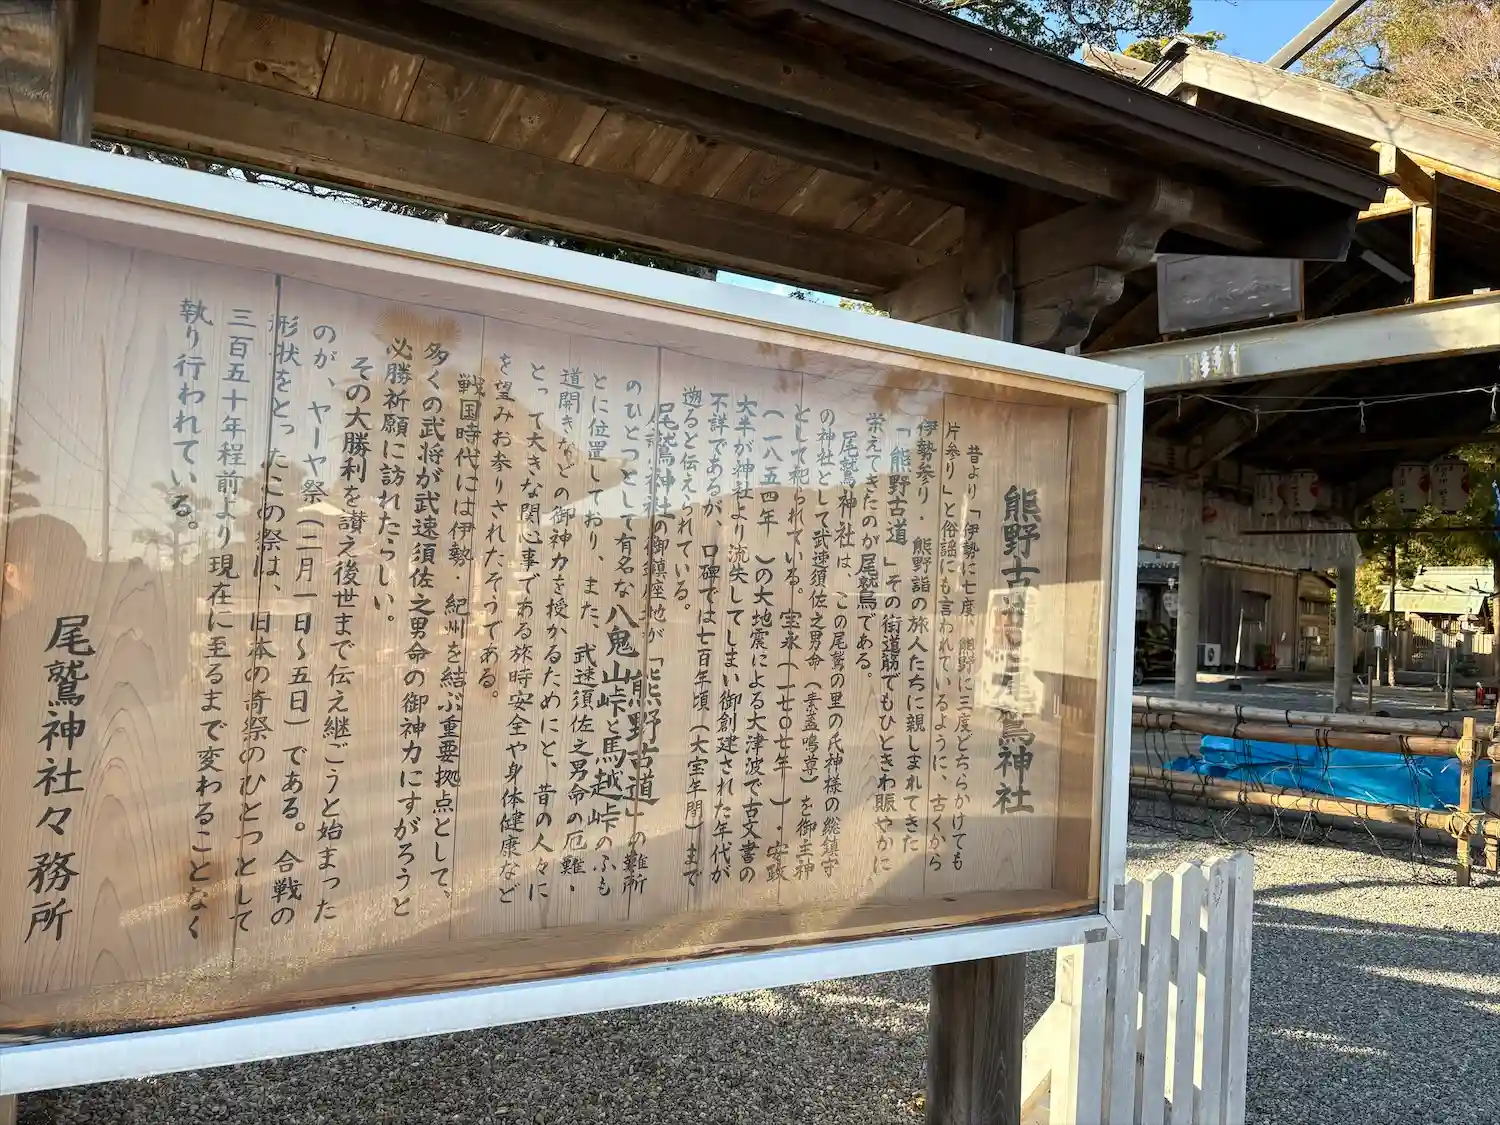 熊野古道と尾鷲神社
昔より「伊勢に七度、熊野に三度どちらかけても
片参り」と俗謡にも言われているように、古くから
伊勢参り・熊野詣の旅人たちに親しまれてきた
「熊野古道」その街道筋でもひときわ賑やかに
栄えてきたのが尾鷲である。
尾鷲神社は、この尾鷲の里の氏神様の総鎮守
の神社として武速須佐之男命(素盞嗚尊)を御主神
として祀られている。宝永(一七〇七年)・安政
(一八五四年)の大地震による大津波で古文書の
大半が神社より流失してしまい御創建された年代が
不詳であるが、口碑では七百年頃(大宝年間)まで
遡ると伝えられている。
尾鷲神社の御鎮座地が「熊野古道」の難所
のひとつとして有名な八鬼山峠と馬越峠のふも
とに位置しており、また、武速須佐之男命の厄難・
道開きなどの御神力を授かるためにと、昔の人々に
とって大きな関心事である旅時安全や身体健康など
を望みお参りされたそうである。
戦国時代には伊勢・紀州を結ぶ重要拠点として、
多くの武将が武速須佐之男命の御神力にすがろうと
必勝祈願に訪れたらしい。
その大勝利を讃え後世まで伝え継ごうと始まった
のが、ヤーヤ祭(二月一日〜五日)である。合戦の
形状をとったこの祭は、日本の奇祭のひとつとして
三百五十年程前より現在に至るまで変わることなく
執り行われている。
尾鷲神社々務所